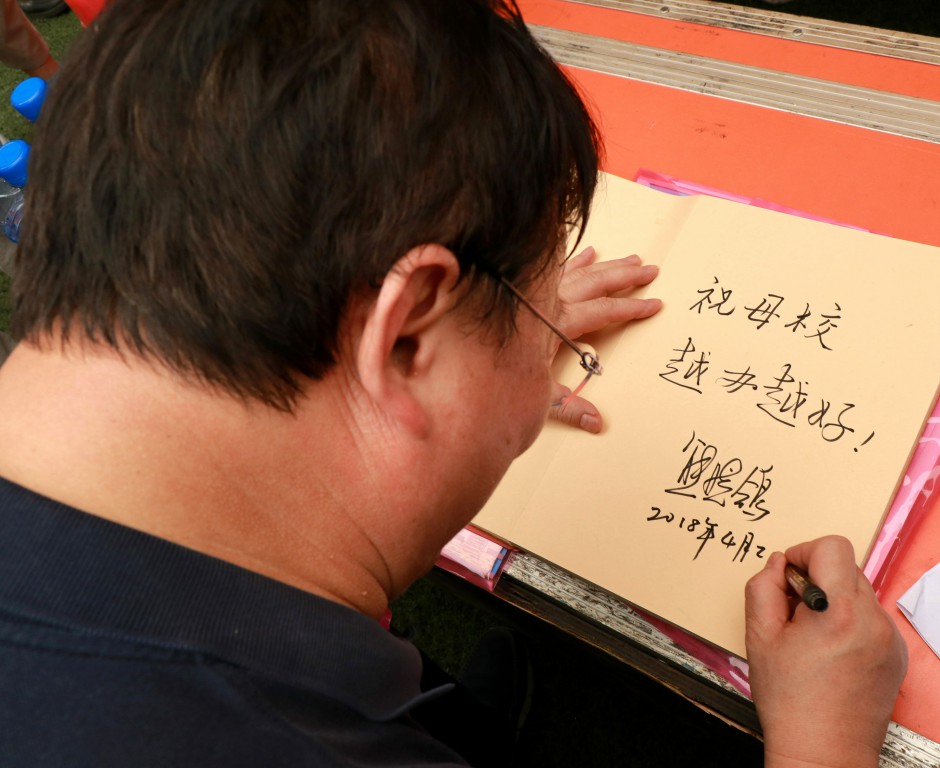 祝母校
越办越好!
2018年4月2